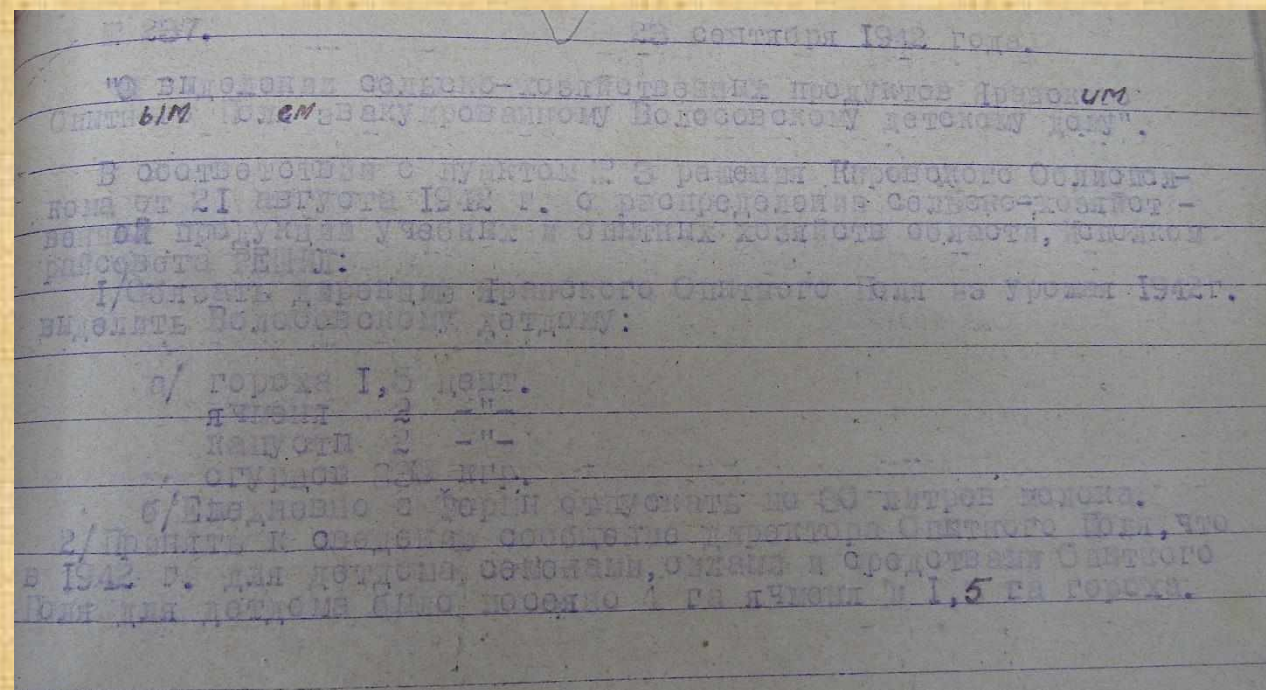 № 237. 23 сентября 1942 года.
"О выделении сельско-хозяйственных продуктов Яранским
Опытным Полем эвакуированному Волосовскому детскому дому".
В соответствии с пунктом № 3 решения Кировского Облисполкома
кома от 21 августа 1942 г. о распределении сельско-хозяйст-
венной продукции учебных и опытных хозяйств области, исполком
райсовета РЕШИЛ:
1/Обязать дирекцию Яранского Опытного Поля из урожая 1942г.
выделить Волосовскому детдому:
а/ гороха 1,5 цент.
ячменя 2 -"-
капусты 2 -"-
огурцов кгр.
б/Ежедневно с фермы отпускать по литров молока.
2/Принять к сведению сообщение директора Опытного Поля, что
в 1942 г. для детдома, семенами, силами и средствами Опытного
Поля для детдома было посеяно 4 га ячменя и 1,5 га гороха.